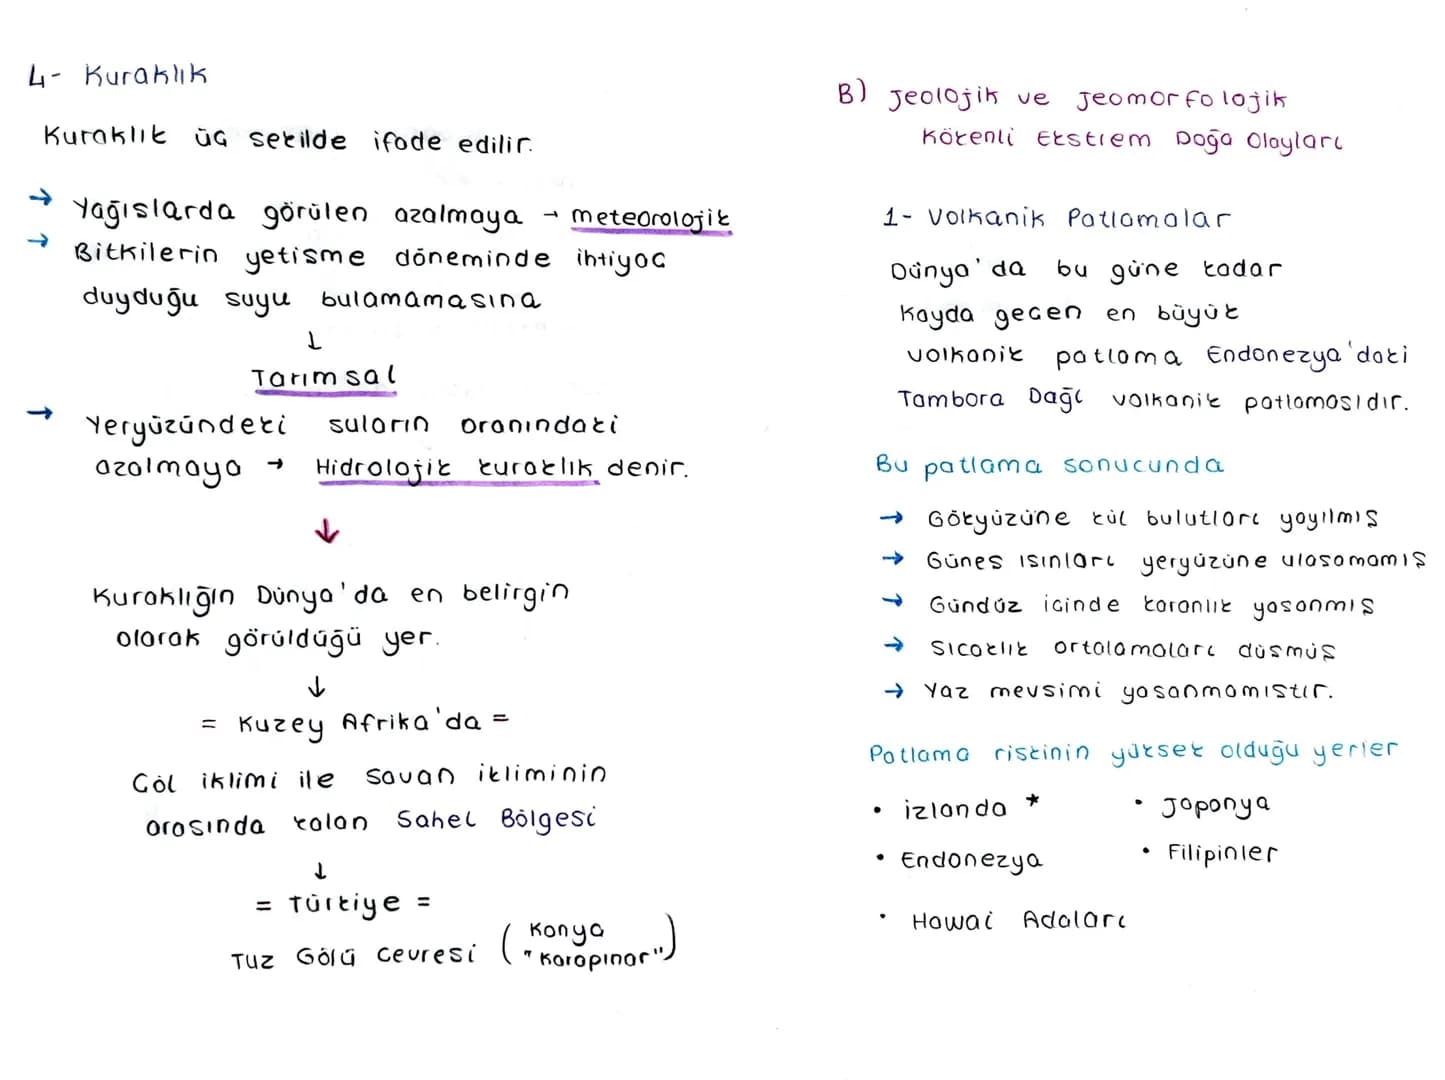 4- Kuraklık
Kuraklık üç şekilde ifade edilir.
→ Yağışlarda görülen azalmaya → meteorolojik
→ Bitkilerin yetişme döneminde ihtiyaç
duyduğu suyu bulamamasına
↓
Tarımsal
→ Yeryüzündeki suların oranındaki
azalmaya → Hidrolojik kuraklık denir.
↓
Kuraklığın Dünya'da en belirgin
olarak görüldüğü yer.
↓
= Kuzey Afrika'da =
Çöl iklimi ile savan ikliminin
arasında kalan Sahel Bölgesi
↓
= Türkiye =
Tuz Gölü Çevresi (Konya
"Karapınar")
B) Jeolojik ve Jeomorfolojik
Kökenli Ekstrem Doğa Olayları
1- Volkanik Patlamalar
Dünya'da bu güne kadar
Kayda geçen en büyük
volkanik patlama Endonezya'daki
Tambora Dağı volkanik patlamasıdır.
Bu patlama sonucunda
→ Gökyüzüne kül bulutları yayılmış
→ Güneş ışınları yeryüzüne ulaşamamış
→ Gündüz içinde karanlık yaşanmış
→ Sıcaklık ortalamaları düşmüş
→ Yaz mevsimi yaşanmamıştır.
Patlama riskinin yüksek olduğu yerler
• İzlanda *
• Japonya
• Endonezya
• Filipinler
• Hawai Adaları